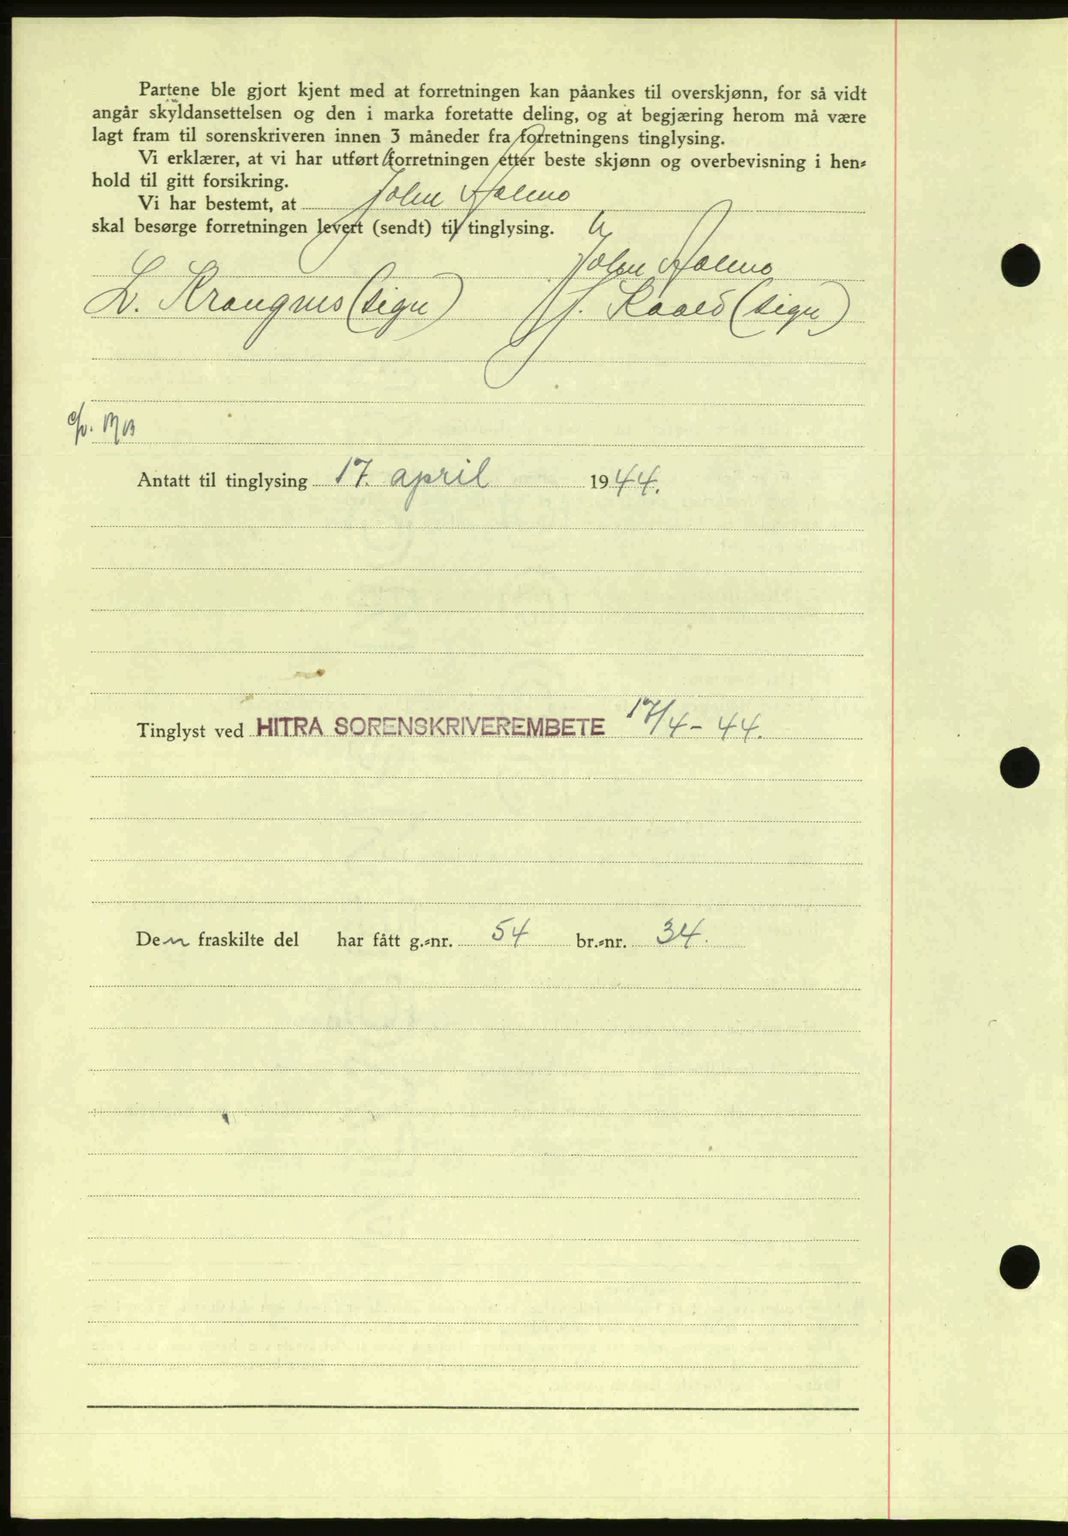 Partene ble gjort kjent med at forretningen kan påankes til overskjønn, for så vidt
angår skyldansettelsen og den i marka foretatte deling, og at begjæring herom må være
lagt fram til sorenskriveren innen 3 måneder fra forretningens tinglysing.
Vi erklærer, at vi har utført forretningen etter beste skjønn og overbevisning i hen-
hold til gitt forsikring.
Vi har bestemt, at John Holmo
skal besørge forretningen levert (sendt) til tinglysing.
John Holmo
L. Krangnes (sign) J. (sign)
Antatt til tinglysing 17. april 1944.
Tinglyst ved HITRA SORENSKRIVEREMBETE 17/4-44.
Den fraskilte del har fått g.-nr. 54 br.-nr. 34.